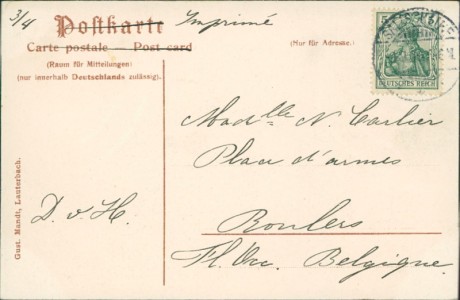 3/4
Postkarte Imprimé
Carte postale — Post card
(Raum für Mitteilungen)
(nur innerhalb Deutschlands zulässig).
(Nur für Adresse.)
5
DEUTSCHES REICH
Madlle N. Carlier
Place d'armes
D. v H.
Roulers
Fl. Occ. Belgique.
Gust. Mandt, Lauterbach.